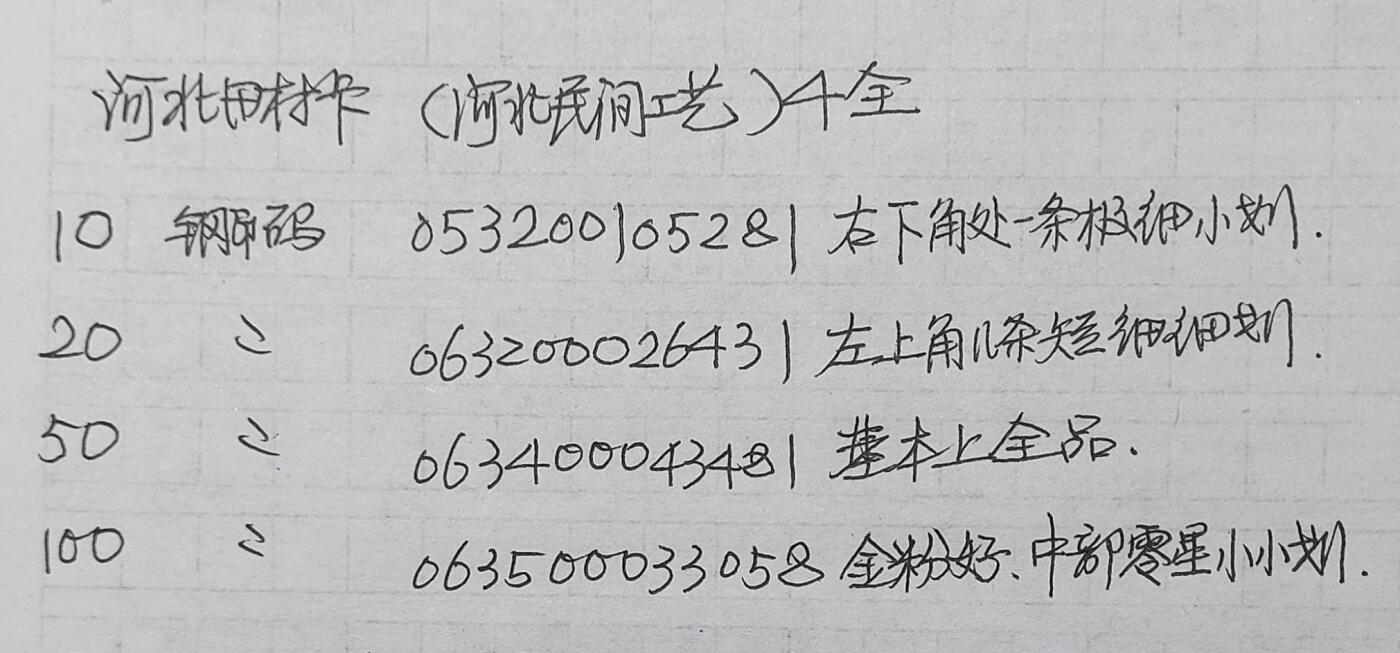 河北田村卡 (河北民间工艺)4全
10 钢印码 053200105281 右下角处一条极细小划.
20 〃 063200026431 左上角几条短细细划.
50 〃 063400043481 基本上全品.
100 〃 063500033058 金粉好、中部零星小小划.